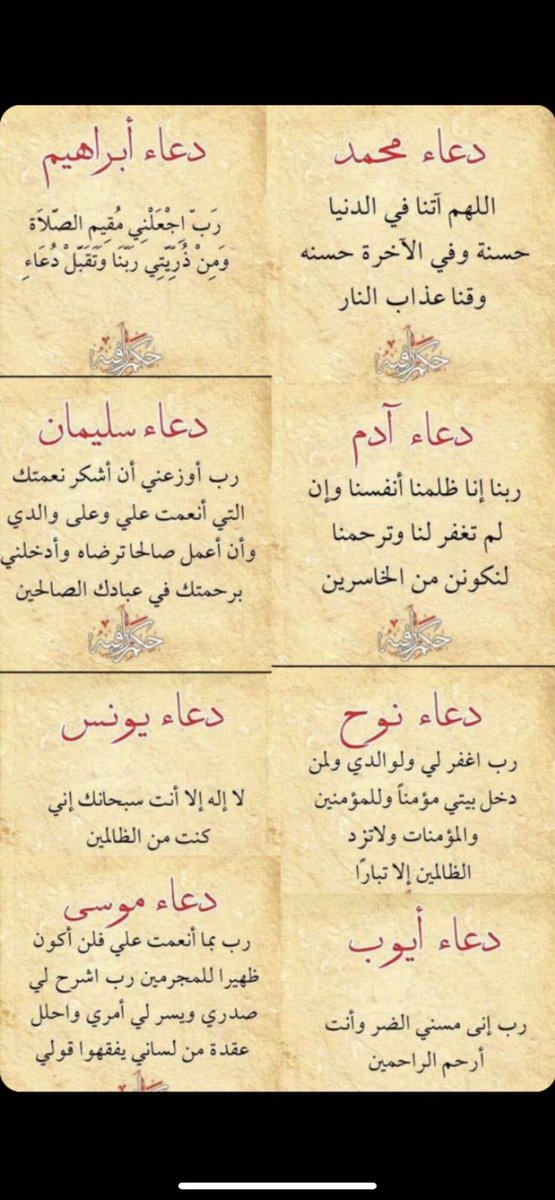 دعاء محمد
اللهم آتنا في الدنيا
حسنة وفي الآخرة حسنه
وقنا عذاب النار
حكم راقية
دعاء أبراهيم
رَبّ اِجْعَلْنِي مُقِيم الصّلاَة
وَمِنْ ذُرِيّتِي رَبّنَا وَتَقَبّلْ دُعَاءِ
حكم راقية
دعاء آدم
ربنا إنا ظلمنا أنفسنا وإن
لم تغفر لنا وترحمنا
لنكونن من الخاسرين
حكم راقية
دعاء سليمان
رب أوزعني أن أشكر نعمتك
التي أنعمت علي وعلى والدي
وأن أعمل صالحا ترضاه وأدخلني
برحمتك في عبادك الصالحين
حكم راقية
دعاء نوح
رب اغفر لي ولوالدي ولمن
دخل بيتي مؤمناً وللمؤمنين
والمؤمنات ولاتزد
الظالمين إلا تبارًا
دعاء يونس
لا إله إلا أنت سبحانك إني
كنت من الظالمين
دعاء أيوب
رب إنى مسني الضر وأنت
أرحم الراحمين
دعاء موسى
رب بما أنعمت علي فلن أكون
ظهيرا للمجرمين رب اشرح لي
صدري ويسر لي أمري واحلل
عقدة من لساني يفقهوا قولي